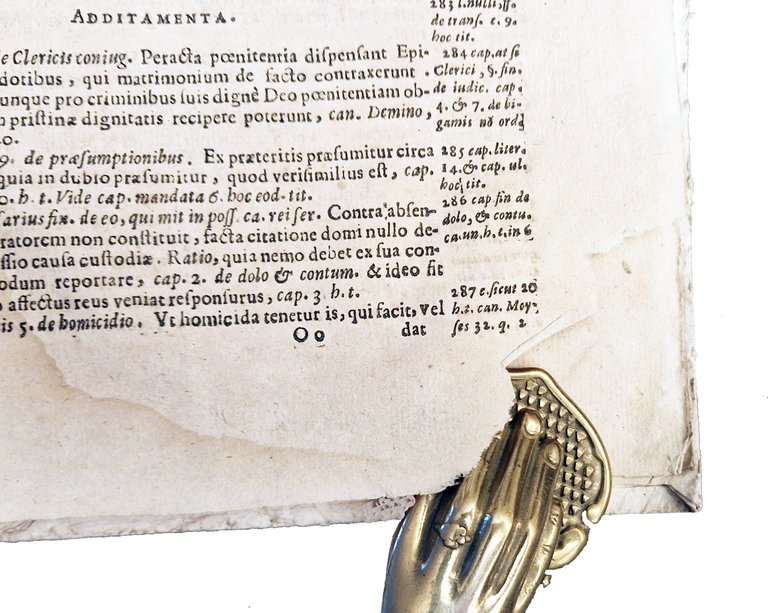 ADDITAMENTA.
e Clericis coniug. Peracta pœnitentia dispensant Epi-
dotibus, qui matrimonium de facto contraxerunt.
unque pro criminibus suis dignè Deo pœnitentiam ob-
n pristinæ dignitatis recipere poterunt, can. Domino,
o.
9. de præsumptionibus. Ex præteritis præsumitur circa
quia in dubio præsumitur, quod verisimilius est, cap.
o. h. t. Vide cap. mandata 6. hoc eod. tit.
sarius fin. de eo, qui mit in poss. ca. rei ser. Contra absen-
ratorem non constituit, facta citatione domi nullo de-
ssio causa custodiæ. Ratio, quia nemo debet ex sua con-
odum reportare, cap. 2. de dolo & contum. & ideo fit
affectus reus veniat responsurus, cap. 3. h. t.
is 5. de homicidio. Vt homicida tenetur is, qui facit, vel
Oo dat
283 l. nulli, ff.
de trans. c. 9.
hoc tit.
284 cap. at si
Clerici, §. fin.
de iudic. cap.
4. & 7. de bi-
gamis nō ord
285 cap. litera.
14. & cap. ul.
hoc tit.
286 cap. fin de
dolo, & contu.
ca. un. h. t. in 6
287 c. sicut 20
h. t. can. Moy-
ses 32. q. 2